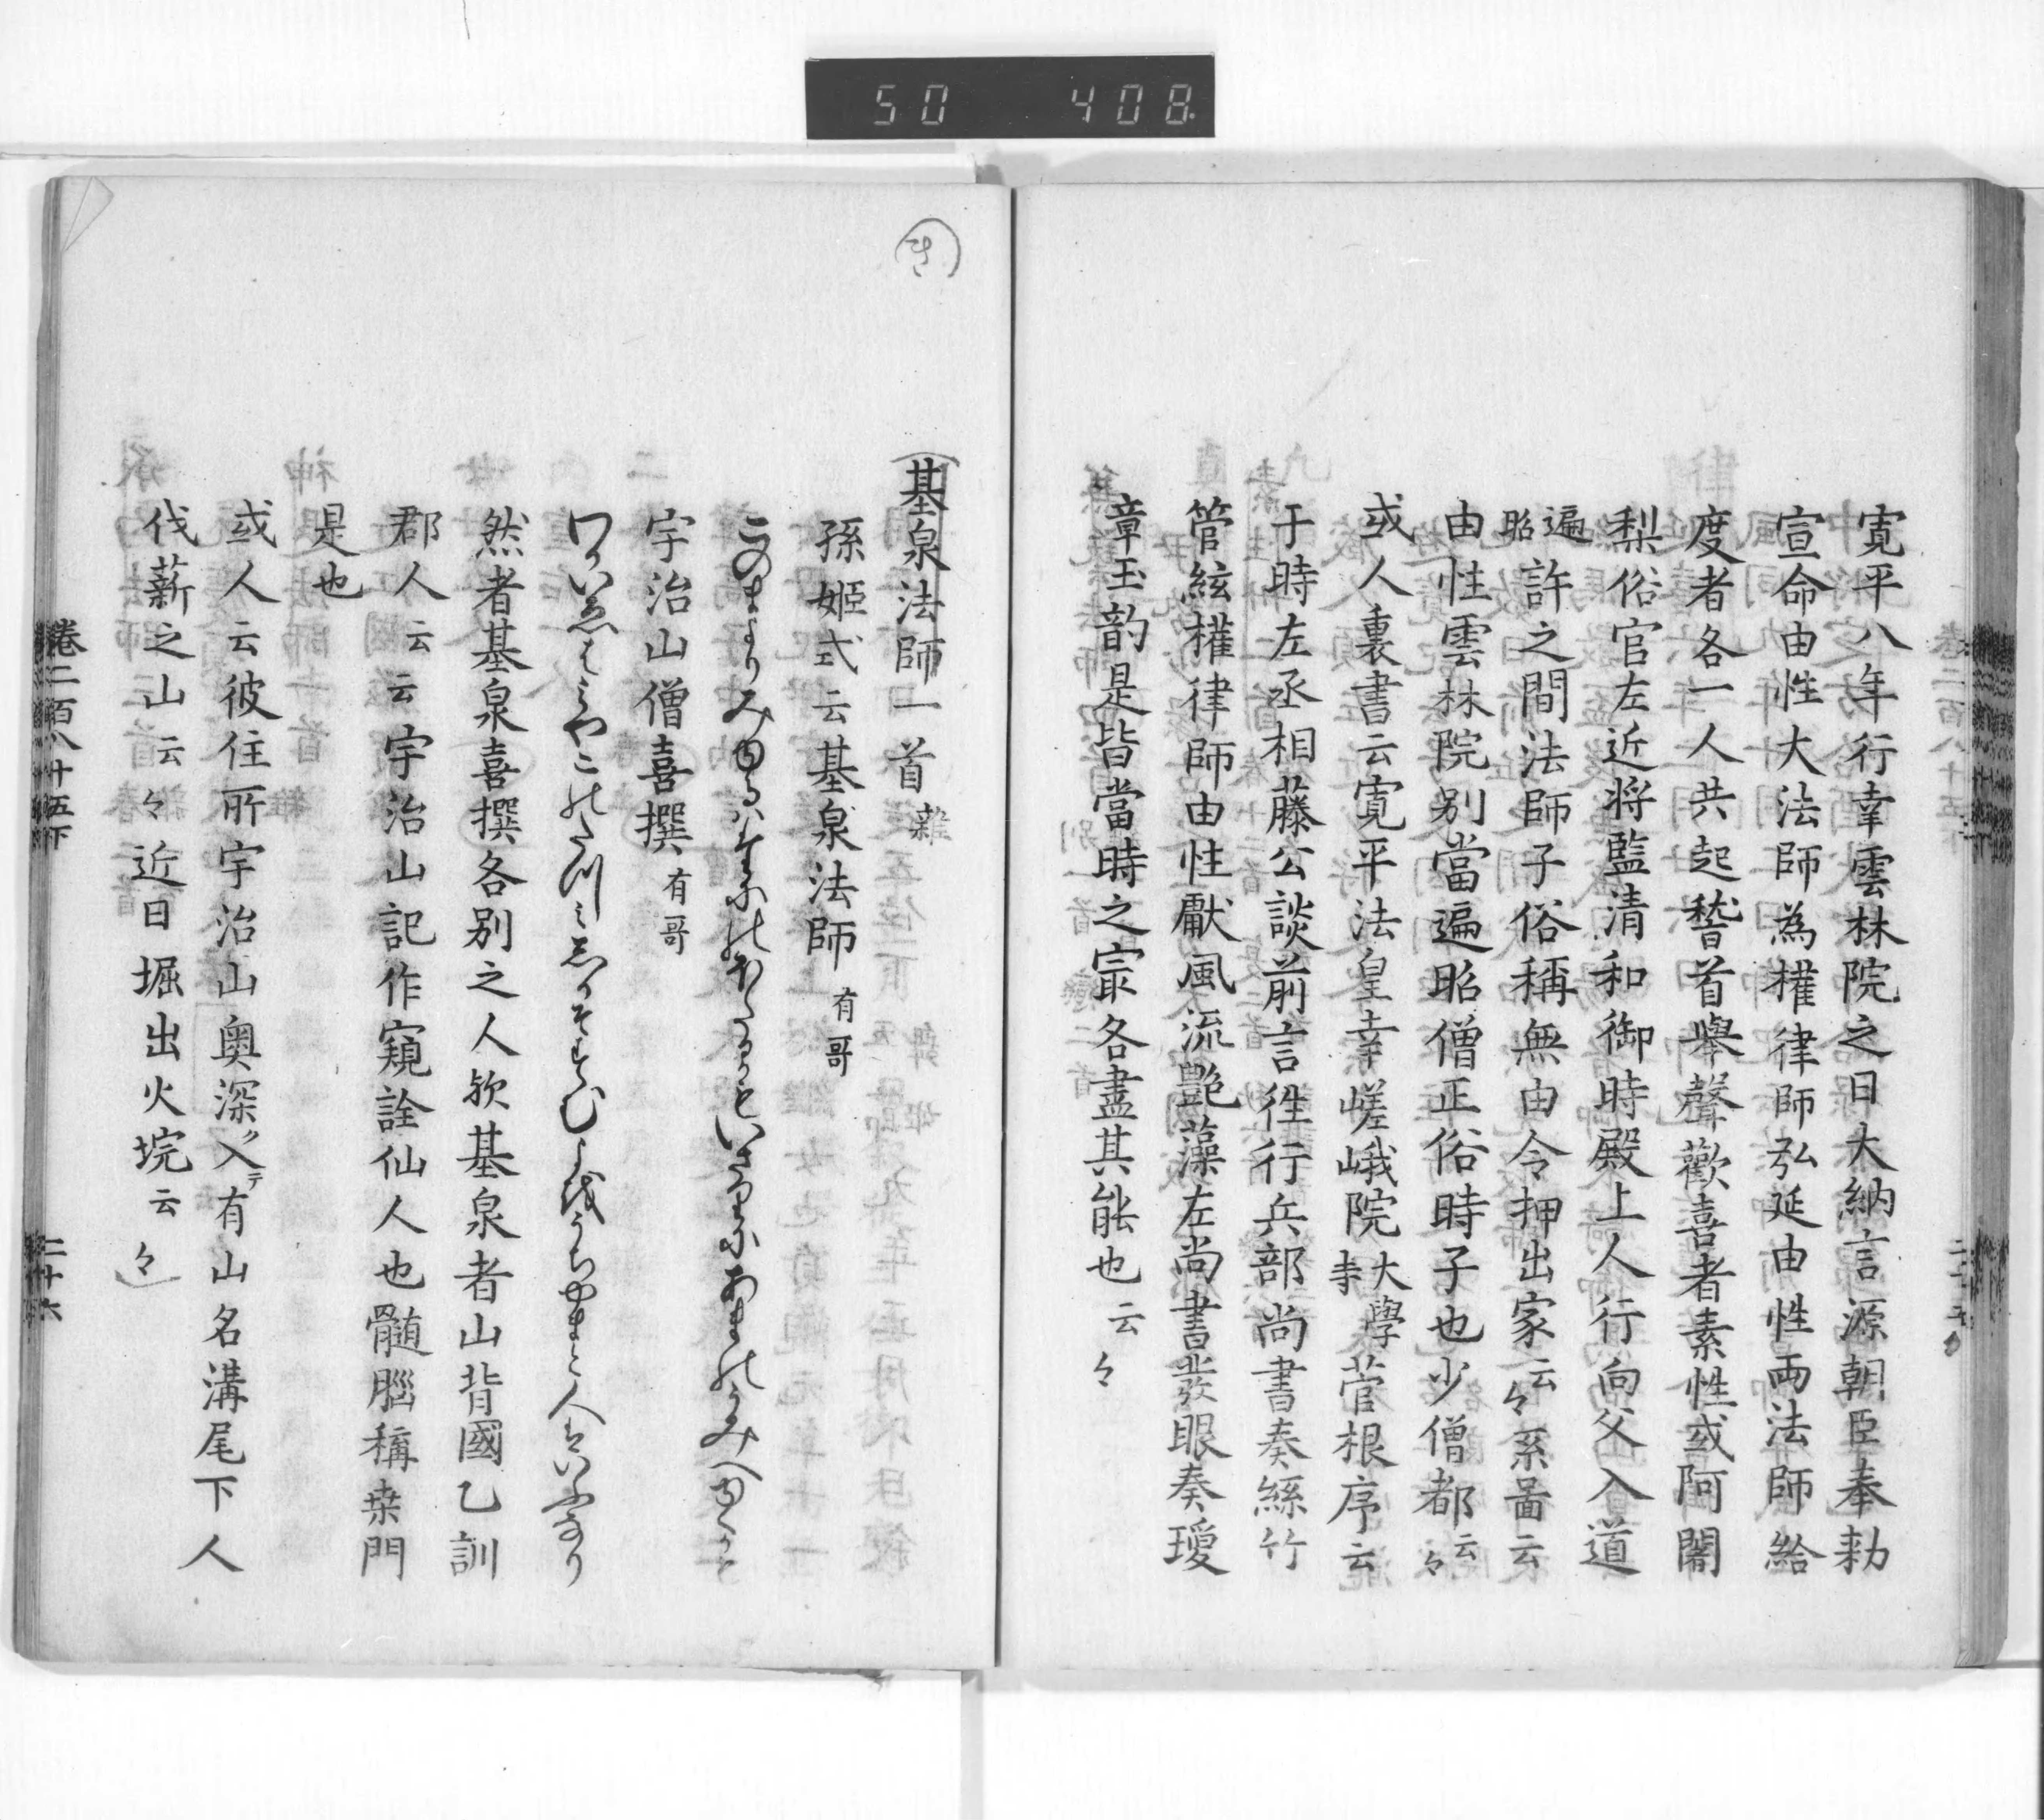 50 408
寛平八年行幸雲林院之日大納言源朝臣奉勅
宣命由性大法師為権律師弘延由性両法師給
度者各一人共起𥡴首舉聲歡喜者素性或阿闍
梨俗官左近将監清和御時殿上人行向父入道
遍昭許之間法師子俗稱無由令押出家云々系啚云
由性雲林院别當遍昭僧正俗時子也少僧都云々
或人裏書云寛平法皇幸嵯峨院大學寺菅根序云
于時左丞相藤公談前言徃行兵部尚書奏絲竹
管絃權律師由性獻風流艶藻左尚書裝眼奏瓊
章玉韵是皆當時之㝡各盡其能也云々
き
基泉法師一首雜
孫姫式云基泉法師有哥
このまよりみゆるはたにのほたるかもいさりにあまのうみへゆくかも
宇治山僧喜撰有哥
わかいほはみやこのたつみしかそすむよをうちやまと人はいふなり
然者基泉喜撰各别之人欤基泉者山背國乙訓
郡人云云宇治山記作窺詮仙人也髄腦稱桒門
是也
或人云彼住所宇治山奥深ク入テ有山名溝尾下人
伐薪之山云々近日堀出火垸云々
卷二百八十五下
二十六